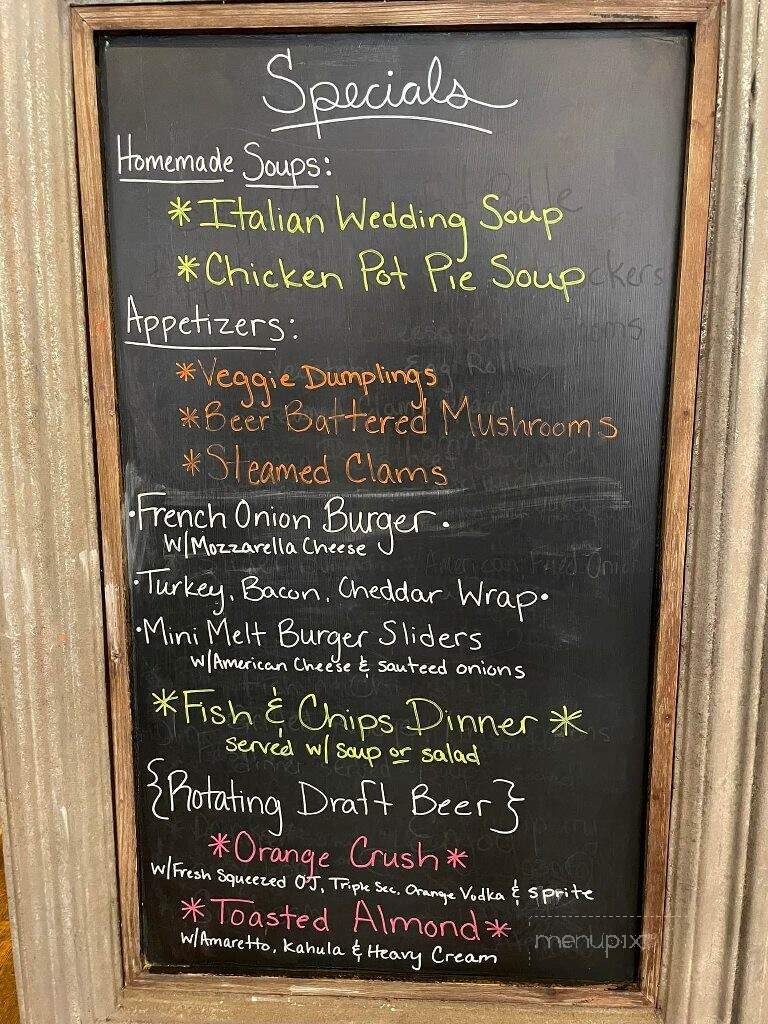 Specials
Homemade Soups:
*Italian Wedding Soup
*Chicken Pot Pie Soup
Appetizers:
*Veggie Dumplings
*Beer Battered Mushrooms
*Steamed Clams
·French Onion Burger·
W/Mozzarella Cheese
·Turkey, Bacon, Cheddar Wrap·
·Mini Melt Burger Sliders
W/American Cheese & Sauteed onions
*Fish & Chips Dinner*
served w/ soup or salad
{Rotating Draft Beer}
*Orange Crush*
W/Fresh Squeezed OJ, Triple Sec, Orange Vodka & Sprite
*Toasted Almond*
W/Amaretto, Kahula & Heavy Cream
menupix